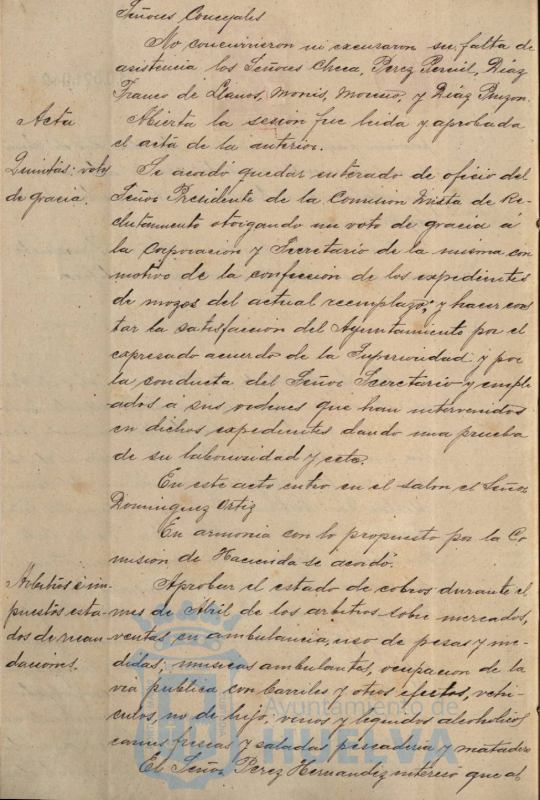 Señores Concejales
No concurrieron ni excusaron su falta de
asistencia los Señores Checa, Perez Pereil, Diaz
Franco de Llanos, Monis, Moreno, y Diaz Pinzon.
Acta
Abierta la sesion fue leida y aprobada
el acta de la anterior.
Quintas: voto
de gracia.
Se acordó quedar enterado de oficio del
Señor Presidente de la Comision Mixta de Re-
clutamiento otorgando un voto de gracia á
la Corporacion y Secretario de la misma con
motivo de la confeccion de los expedientes
de mozos del actual reemplazo; y hacer cons
tar la satisfaccion del Ayuntamiento por el
expresado acuerdo de la Superioridad y por
la conducta del Señor Secretario y emple
-ados á sus ordenes que han intervenidos
en dichos expedientes dando una prueba
de su laboriosidad y celo.
En este acto entro en el salon el Señor
Dominguez Ortiz
En armonia con lo propuesto por la Co
mision de Hacienda se acordó.
Arbitrios é im-
puestos esta-
dos de recau-
daciones.
Aprobar el estado de cobros durante el
mes de Abril de los arbitrios sobre mercados,
ventas en ambulancia, uso de pesas y me-
didas; musicas ambulantes, ocupacion de la
via publica con barriles y otros efectos, vehi-
culos, no de lujo; vinos y liquidos alcoholicos
carnes frescas y saladas pescaderia y matadero
El Señor Perez Hernandez interesó que al
Ayuntamiento de
HUELVA